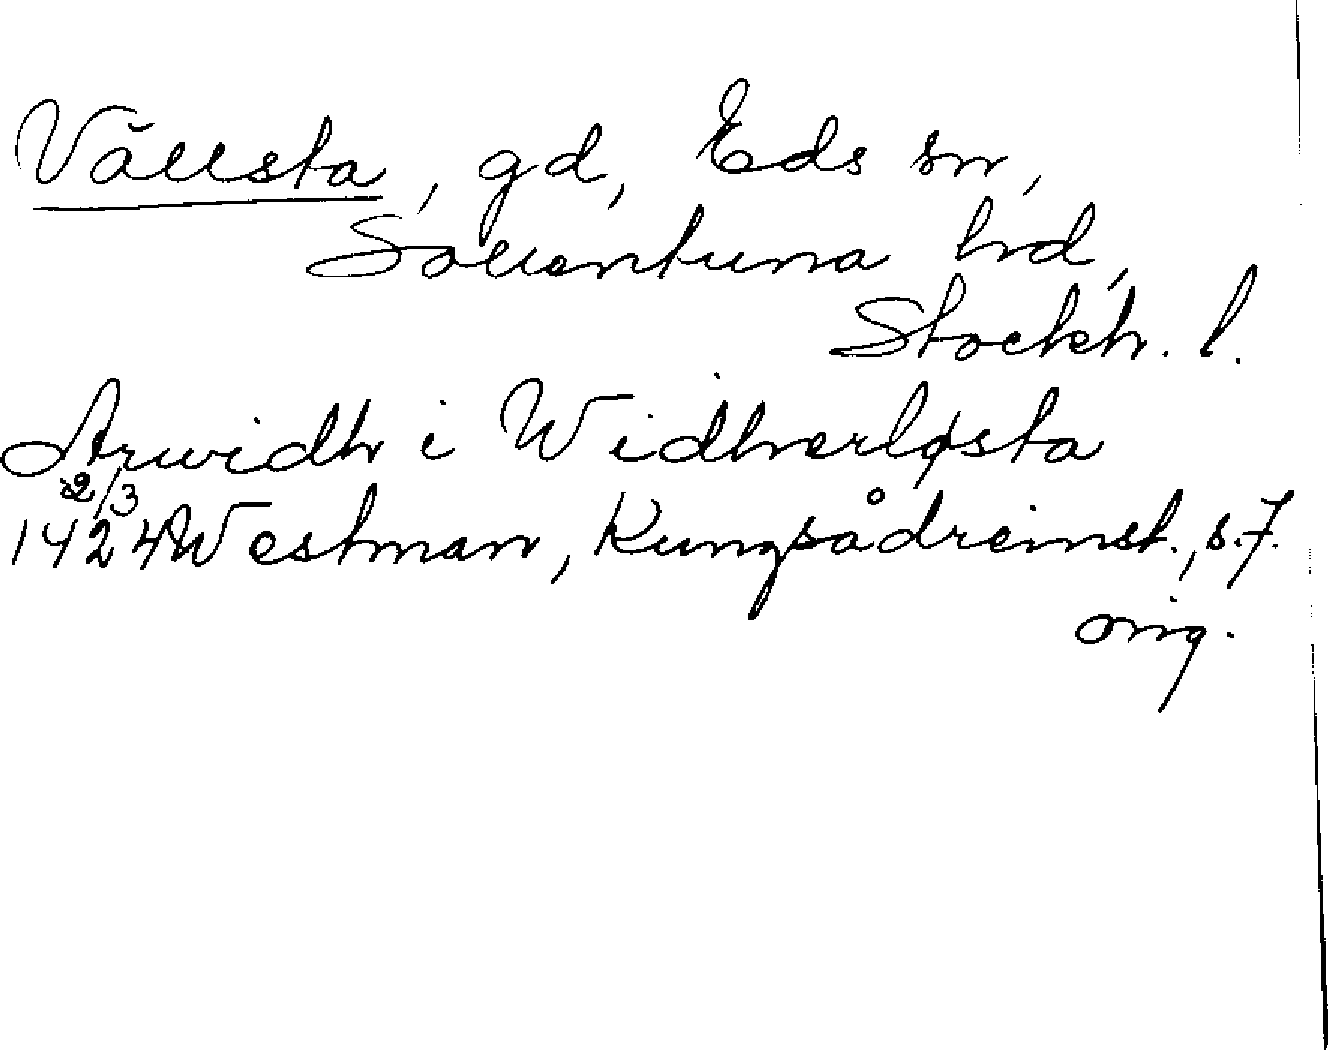 Vällsta, gd, Eds sn,
Sollentuna hd,
Stockh. l.
Arwidh i Widherløsta
22/3
1424 Westman, Kungsådreinst., s. 7.
orig.